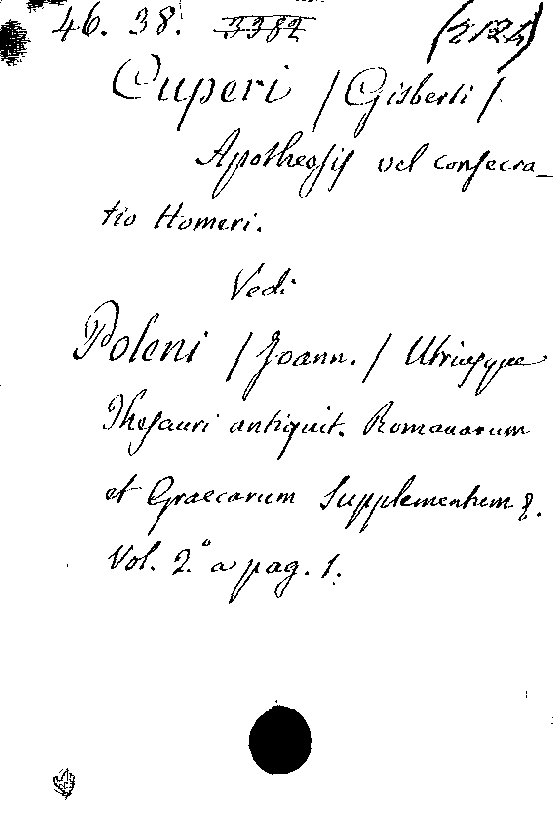 46. 38. 3382 (2124)
Cuperi / Gisberti /.
Apotheosis vel consecra_
tio Homeri.
Vedi
Poleni / Joann. / Utriusque
Thesauri antiquit. Romanarum
et Graecarum Supplementum &.
Vol. 2.° a pag. 1.